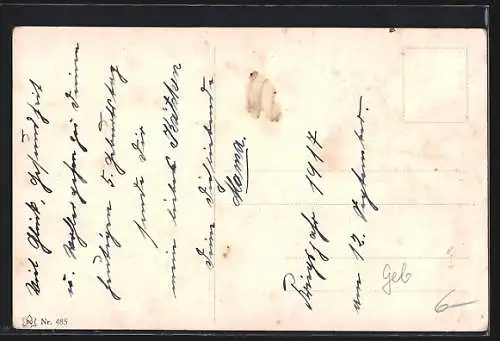 Viel Glück, Gesundheit
u. Wohlergehen zu Deinem
heutigen 5. Geburtstag
sende Dir
mein liebes Kätchen
Deine Dichliebende
Mama.
Kriegsjahr 1917
am 12. September.
Geb
6
Nr. 485